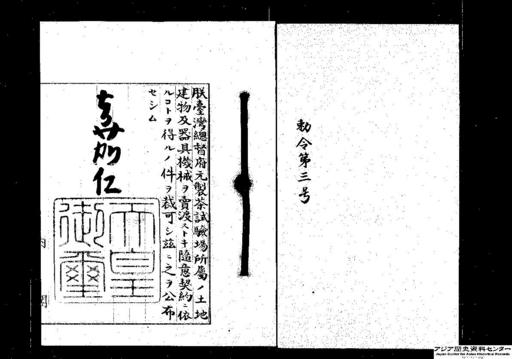 勅令第三号
朕臺灣總督府元製茶試驗場所屬ノ土地
建物及器具機械ヲ賣渡ストキ隨意契約ニ依
ルコトヲ得ルノ件ヲ裁可シ茲ニ之ヲ公布
セシム
嘉仁
天皇
御璽
アジア歴史資料センター
Japan Center for Asian Historical Records